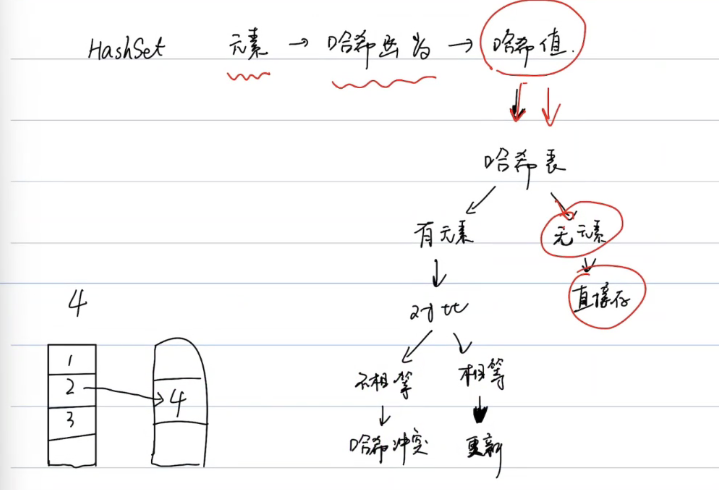 HashSet 元素 → 哈希函数 → 哈希值.
哈希表
有元素 无元素
对比 直接存
4
不相等 相等
哈希冲突 更新
1
2 → 4
3